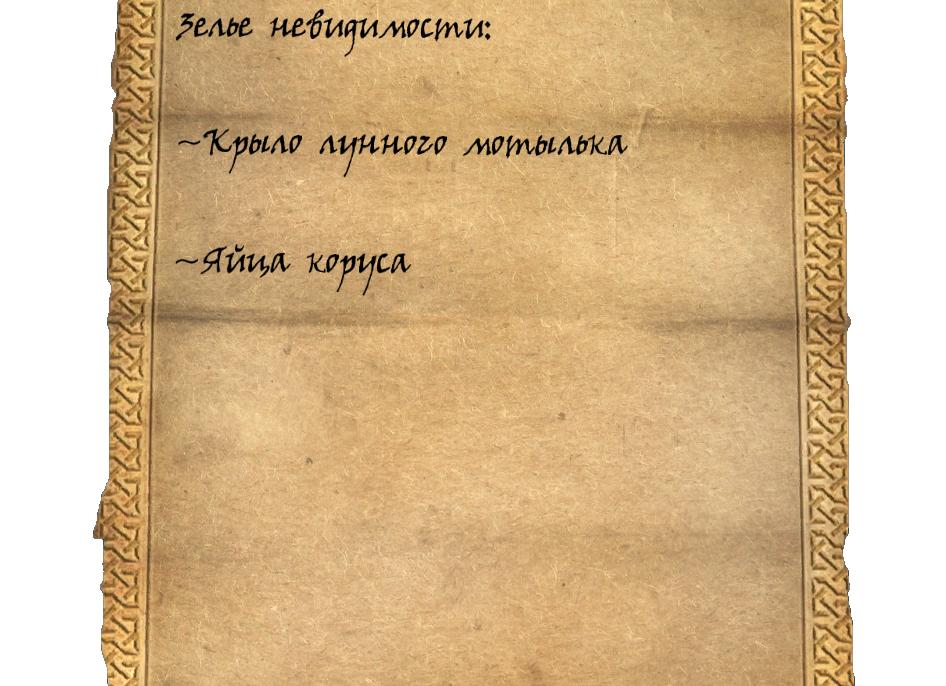 Зелье невидимости:
~Крыло лунного мотылька
~Яйца коруса